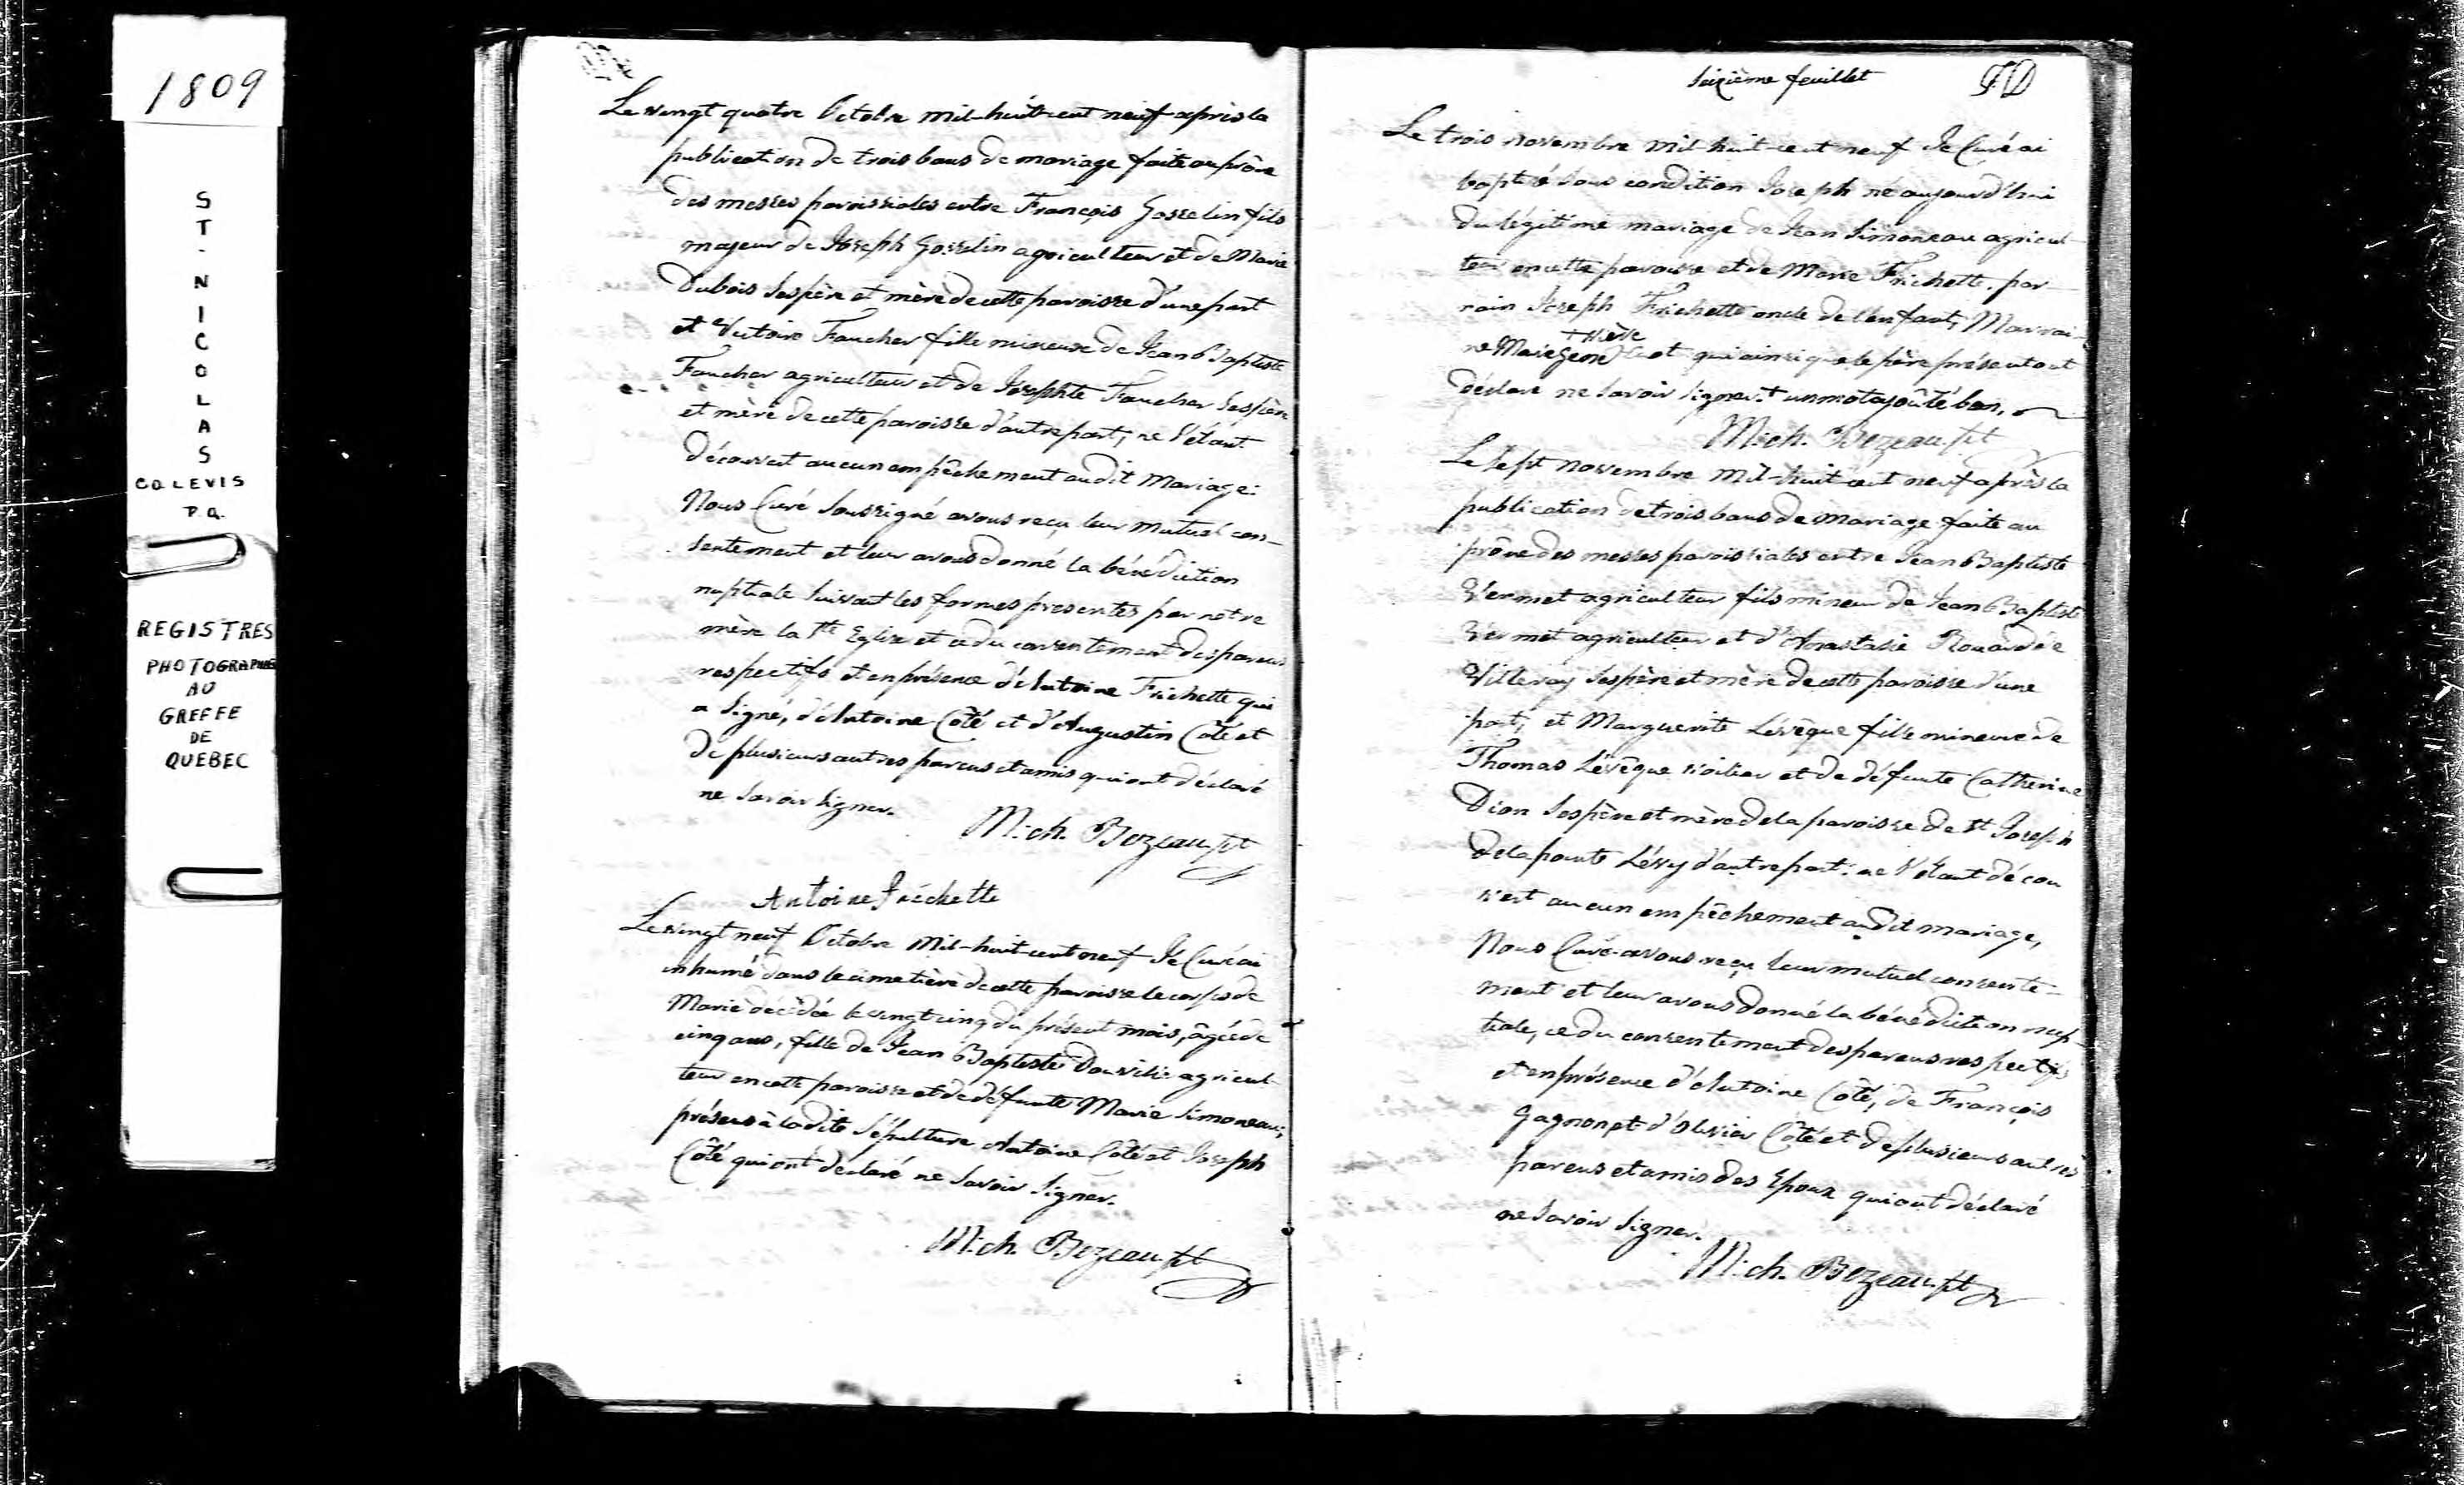 1809
ST-NICOLAS
CO. LEVIS
P.Q.
REGISTRES
PHOTOGRAPHIE
AU
GREFFE
DE
QUEBEC
Le vingt quatre Octobre mil-huit-cent neuf après la
publication de trois bans de mariage faite au prône
des messes paroissiales entre François Gosselin fils
majeur de Joseph Gosselin agriculteur et de Marie
Dubois ses père et mère de cette paroisse d'une part
et Victoire Faucher fille mineure de Jean Baptiste
Faucher agriculteur et de Josephte Faucher ses père
et mère de cette paroisse d'autre part, ne s'étant
découvert aucun empêchement audit mariage:
Nous Curé soussigné avons reçu leur mutuel con-
sentement et leur avons donné la bénédiction
nuptiale suivant les formes prescrites par notre
mère la Ste Eglise et ce du consentement des parens
respectifs et en présence d'Antoine Frichette qui
a signé, d'Antoine Côté et d'Augustin Côté et
de plusieurs autres parens et amis qui ont déclaré
ne savoir signer.
Mich. Bezeau ptt
Antoine Fréchette
Le vingt neuf Octobre mil-huit-cent neuf Je Curé ai
inhumé dans le cimetière de cette paroisse le corps de
Marie décédée le vingt cinq du présent mois, âgée de
cinq ans, fille de Jean Baptiste Douville agricul-
teur en cette paroisse et de défunte Marie Simoneau;
présens à la dite sépulture Antoine Côté et Joseph
Côté qui ont déclaré ne savoir signer.
Mich. Bezeau ptt
Seizième feuillet
Le trois novembre mil-huit-cent neuf Je Curé ai
baptisé sous condition Joseph né aujourd'hui
du légitime mariage de Jean Simoneau agricul-
teur en cette paroisse et de Marie Frichette. par-
rain Joseph Frichette oncle de l'enfant; Marrai-
ne Marie qui ainsi que le père présent ont
déclaré ne savoir signer. + un mot ajoûté bon,
Mich. Bezeau ptt
Le sept novembre mil-huit-cent neuf après la
publication de trois bans de mariage faite au
prône des messes paroissiales entre Jean Baptiste
Vermet agriculteur fils mineur de Jean Baptiste
Vermet agriculteur et d'Anastasie
Villeray ses père et mère de cette paroisse d'une
part; et Marguerite Lévêque fille mineure de
Thomas Lévêque voilier et de défunte Catherine
Dion ses père et mère de la paroisse de St Joseph
de la pointe Lévy d'autre part: ne s'étant décou
vert aucun empêchement audit mariage,
Nous Curé avons reçu leur mutuel consente-
ment et leur avons donné la bénédiction nup-
tiale, ce du consentement des parens respectifs
et en présence d'Antoine Côté, de François
Gagnon et d'Olivier Côté et de plusieurs autres
parens et amis des Epoux qui ont déclaré
ne savoir signer.
Mich. Bezeau. ptt